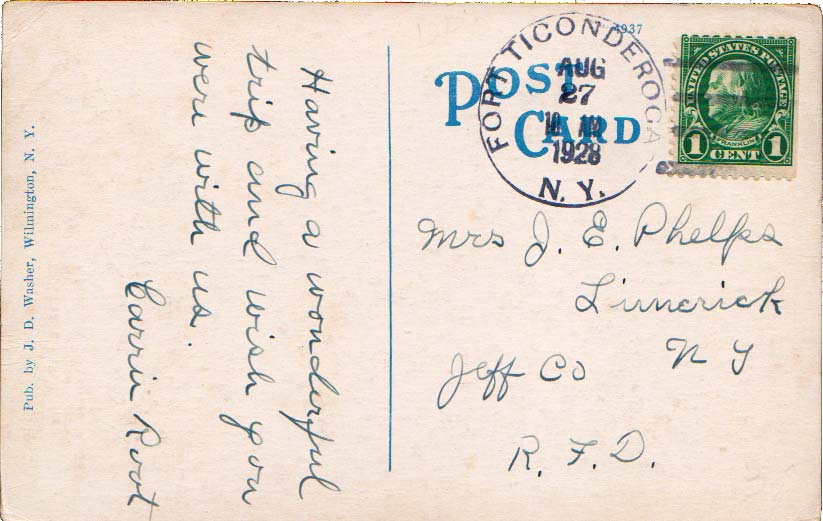 Pub. by J. D. Washer, Wilmington, N. Y.
Having a wonderful
trip and wish you
were with us.
Carrie Root
4937
POST
CARD
FORT TICONDEROGA
AUG
27
10 AM
1928
N. Y.
UNITED STATES POSTAGE
FRANKLIN
1 CENT 1
Mrs J. E. Phelps
Limerick
Jeff Co N Y
R. F. D.